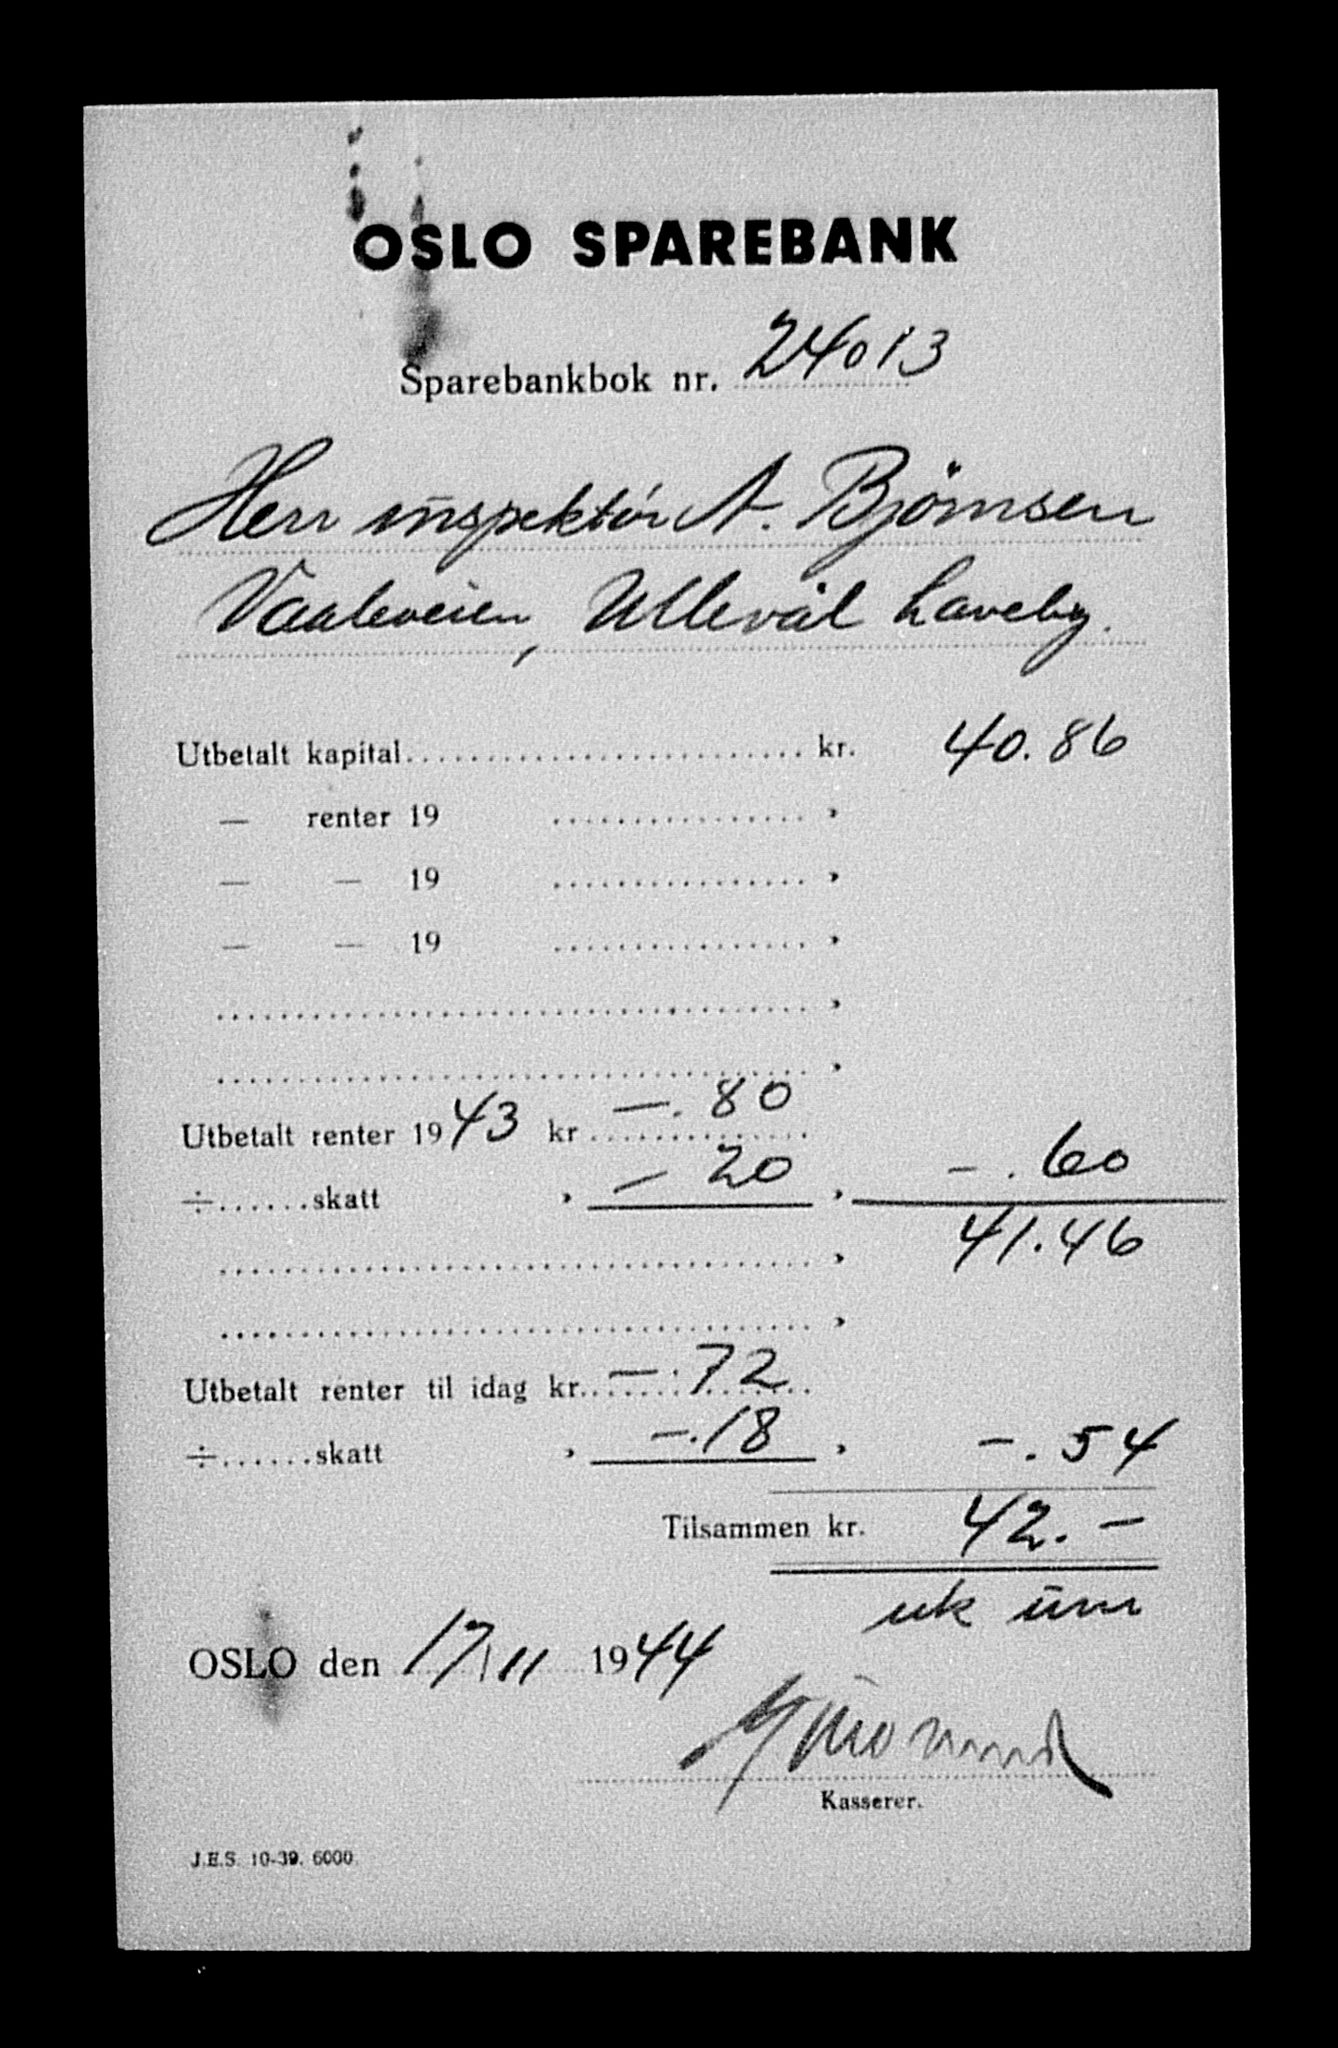 OSLO SPAREBANK
Sparebankbok nr. 24013
Herr inspektør A. Bjørnsen
Vaaleveien, Ullevål haveby.
Utbetalt kapital........................ kr. 40.86
— renter 19 ................ »
— — 19 ................ »
— — 19 ................ »
..................................... »
..................................... »
Utbetalt renter 1943 kr. —.80
÷......skatt » — 20 » —.60
..................................... » 41.46
..................................... »
Utbetalt renter til idag kr. —.72
÷......skatt » —.18 » —.54
Tilsammen kr. 42.—
OSLO den 17/11 1944
Kasserer.
J.E.S. 10-39. 6000.